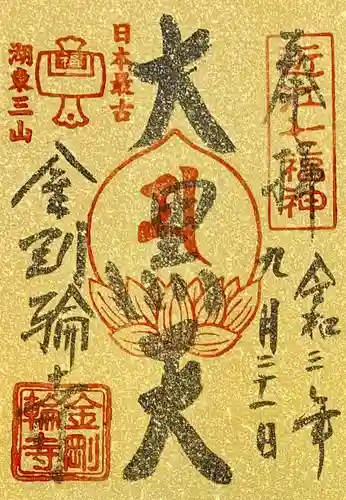 近江七福神
奉拝
令和三年
九月二十一日
大黒天
日本最古
湖東三山
金剛輪寺
金剛
輪寺